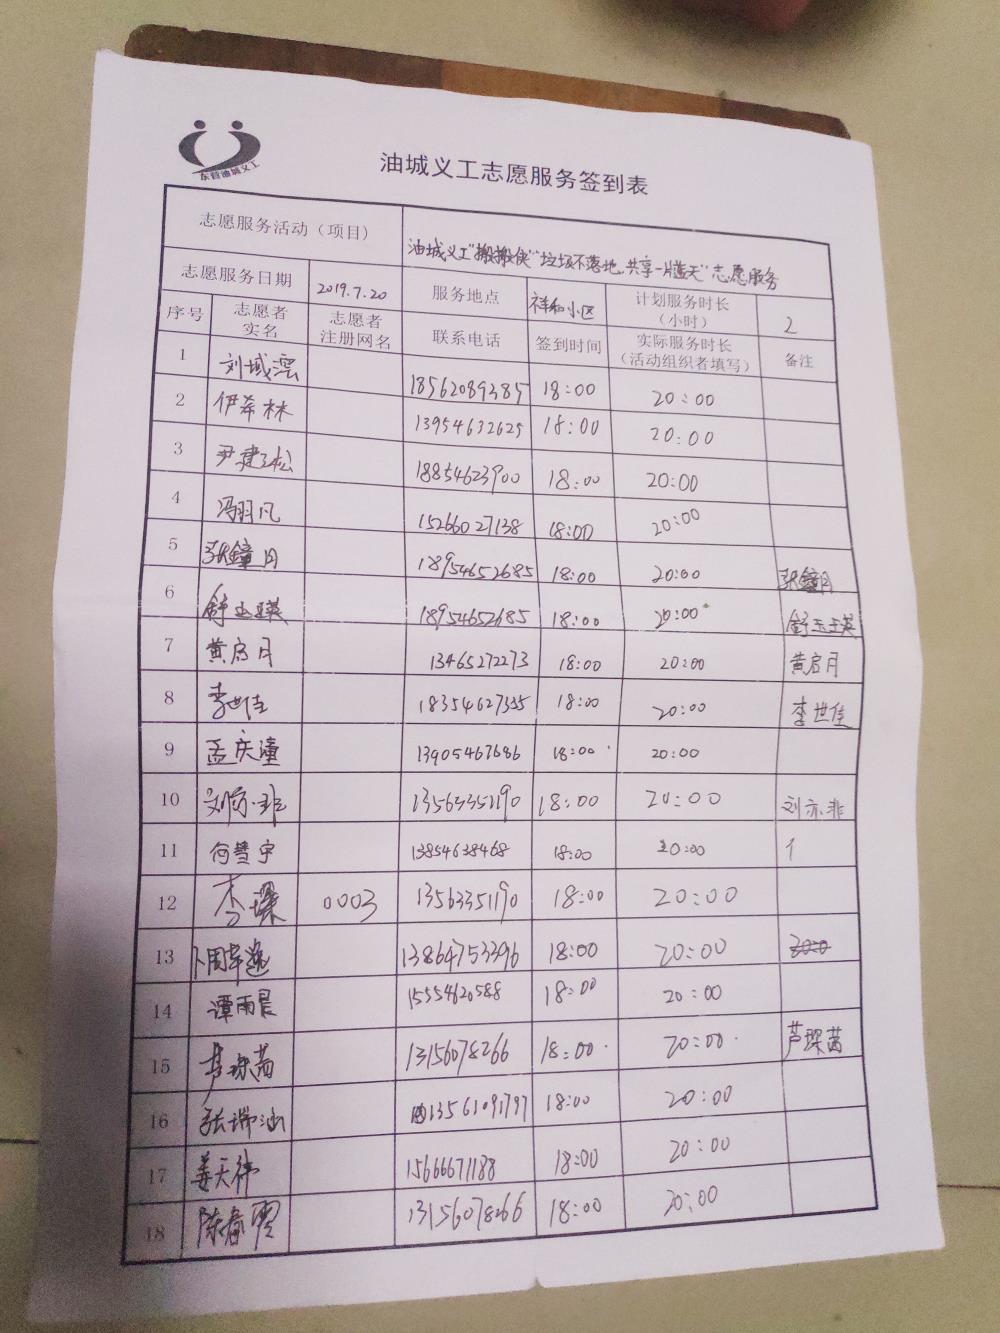 东营油城义工
油城义工志愿服务签到表
志愿服务活动（项目） 油城义工"搬搬侠""垃圾不落地，共享一片蓝天"志愿服务
志愿服务日期 2019.7.20 服务地点 祥和小区 计划服务时长（小时） 2
序号 志愿者实名 志愿者注册网名 联系电话 签到时间 实际服务时长（活动组织者填写） 备注
1 刘域 18562089385 18:00 20:00
2 伊希林 13954632625 18:00 20:00
3 尹建松 18854623900 18:00 20:00
4 冯羽凡 15266027138 18:00 20:00
5 张鐘月 18954652685 18:00 20:00 张鐘月
6 舒玉瑛 18954652685 18:00 20:00 舒玉瑛
7 黄启月 13465272273 18:00 20:00 黄启月
8 李世佳 18354627355 18:00 20:00 李世佳
9 孟庆潼 13905467686 18:00 20:00
10 刘亦非 13563351190 18:00 20:00 刘亦非
11 何慧宇 13854638468 18:00 20:00
12 李琛 0003 13563351190 18:00 20:00
13 卜周幸逸 13864753396 18:00 20:00
14 谭雨晨 15554620588 18:00 20:00
15 芦琛茜 13156078266 18:00 20:00 芦琛茜
16 张瑞涵 13561091797 18:00 20:00
17 姜天祎 15666671188 18:00 20:00
18 陈春雫 13156078266 18:00 20:00